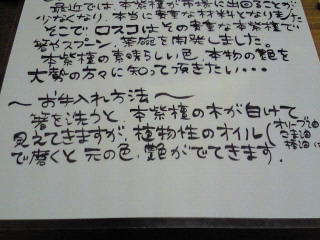 最近では、本紫檀が市場に出回ることが
少なくなり、本当に貴重な材料となりました
そこで ロスコはその貴重な本紫檀で
箸やスプーン、茶碗を開発しました。
本紫檀の素晴らしい色、本物の艶を
大勢の方々に知って頂きたい・・・
〜お手入れ方法〜
箸を洗うと、本紫檀の木が白けて
見えてきますが、植物性のオイル(オリーブ油
ごま油
椿油
で磨くと元の色、艶がでてきます。